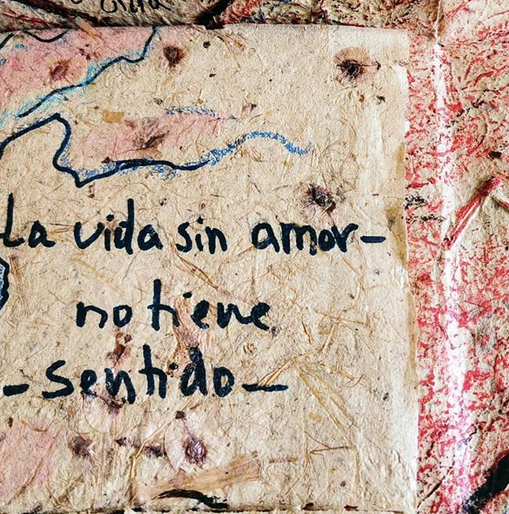 La vida sin amor-
no tiene
- sentido -